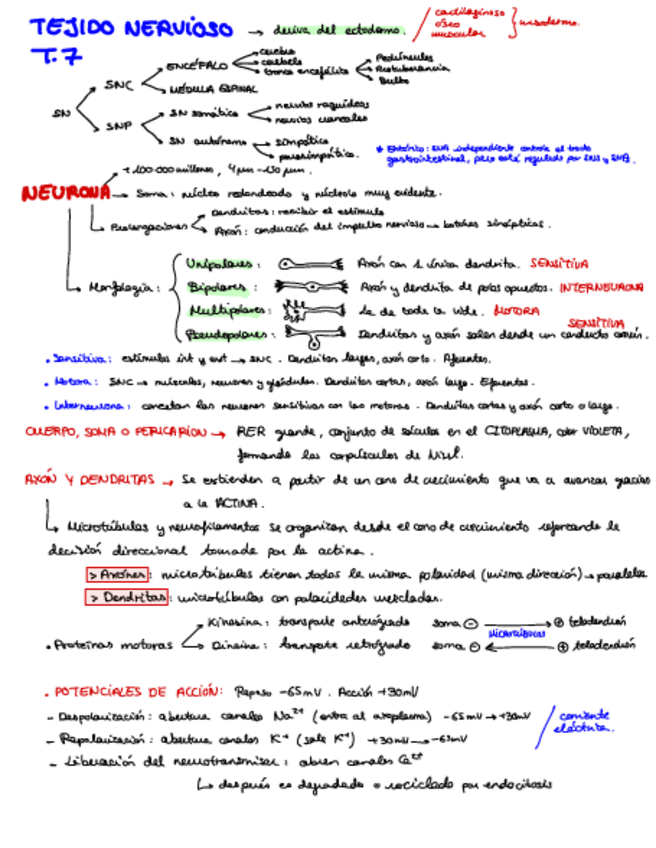 TEJIDO NERVIOSO → deriva del ectodermo. / cartilaginoso óseo muscular } mesodermo.
T.7
SN
SNC
ENCÉFALO
cerebro
cerebelo
tronco encefálico
Pedúnculos
Protuberancia
Bulbo
MÉDULA ESPINAL
SNP
SN somático
nervios raquídeos
nervios craneales
SN autónomo
simpático
parasimpático.
* Entérico: SNA independiente controla el tracto
gastrointestinal, pero está regulado por SNS y SNA.
+100.000 millones, 4μm-150μm.
NEURONA → Soma: núcleo redondeado y nucleolo muy evidente.
Prolongaciones
Dendritas: recibir el estímulo
Axón: conducción del impulso nervioso → botones sinápticos.
Morfología:
Unipolares: Axón con 1 única dendrita. SENSITIVA
Bipolares: Axón y dendrita de polos opuestos. INTERNEURONA
Multipolares: La de toda la vida. MOTORA
Pseudopolares: Dendritas y axón salen desde un conducto común. SENSITIVA
• Sensitiva: estímulos int y ext → SNC. Dendritas largas, axón corto. Aferentes.
• Motora: SNC → músculos, neuronas y glándulas. Dendritas cortas, axón largo. Eferentes.
• Interneurona: conectan las neuronas sensitivas con las motoras. Dendritas cortas y axón corto o largo.
CUERPO, SOMA O PERICARION → RER grande, conjunto de sáculos en el CITOPLASMA, color VIOLETA,
formando los corpúsculos de Nissl.
AXÓN Y DENDRITAS → Se extienden a partir de un cono de crecimiento que va a avanzar gracias
a la ACTINA.
↳ Microtúbulos y neurofilamentos se organizan desde el cono de crecimiento reforzando la
decisión direccional tomada por la actina.
> Axones: microtúbulos tienen todos la misma polaridad (misma dirección) → paralelos
> Dendritas: microtúbulos con polaridades mezcladas.
• Proteínas motoras
Kinesina: transporte anterógrado soma ⊖ → ⊕ telodendrón
MICROTÚBULOS
Dineina: transporte retrógrado soma ⊖ ← ⊕ telodendrón
• POTENCIALES DE ACCIÓN: Reposo -65mV. Acción +30mV
- Despolarización: abertura canales Na²⁺ (entra al axoplasma) -65mV → +30mV / corriente eléctrica.
- Repolarización: abertura canales K⁺ (sale K⁺) +30mV → -65mV
- Liberación del neurotransmisor: abren canales Ca²⁺
↳ después es degradado o reciclado por endocitosis